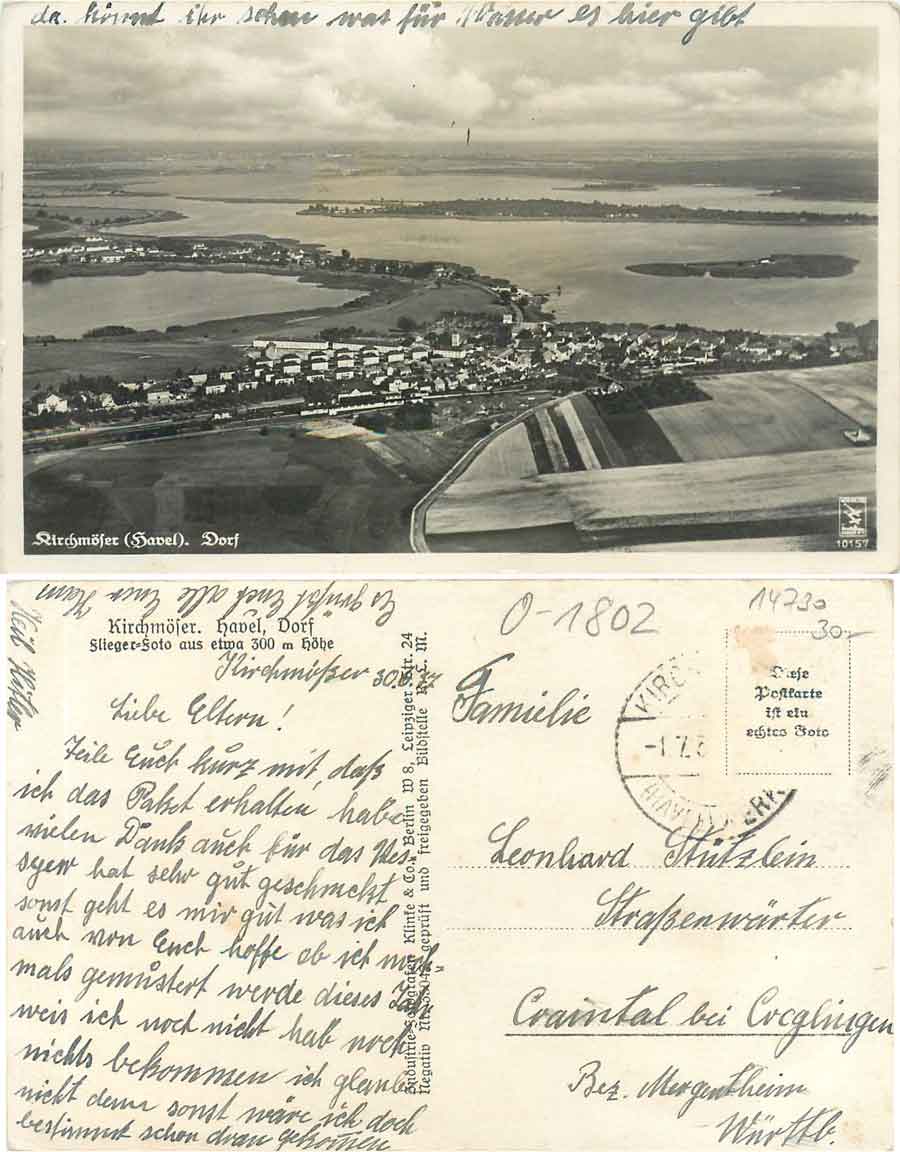 da könnt ihr sehen was für Wasser es hier gibt
Kirchmöser (Havel). Dorf
10157
Es grüßt Euch alle Euer
Kirchmöser. Havel, Dorf
Flieger-Foto aus etwa 300 m Höhe
Kirchmößer 30.6.
Liebe Eltern!
Teile Euch kurz mit, daß
ich das Paket erhalten habe
vielen Dank auch für das
hat sehr gut geschmeckt
sonst geht es mir gut was ich
auch von Euch hoffe ob ich noch
mals gemustert werde dieses Jahr
weis ich noch nicht hab noch
nichts bekommen ich glaube
nicht denn sonst wäre ich doch
bestimmt schon dran gekommen
Klinke & Co., Berlin W 8, Leipziger Str. 24
Negativ geprüft und freigegeben Bildstelle R. L. M.
O-1802
14730
30.-
Diese
Postkarte
ist ein
echtes Foto
-1.7.3
(HAVEL)
Familie
Leonhard Stützlein
Straßenwärter
Craintal bei Creglingen
Bez. Mergentheim
Württb.